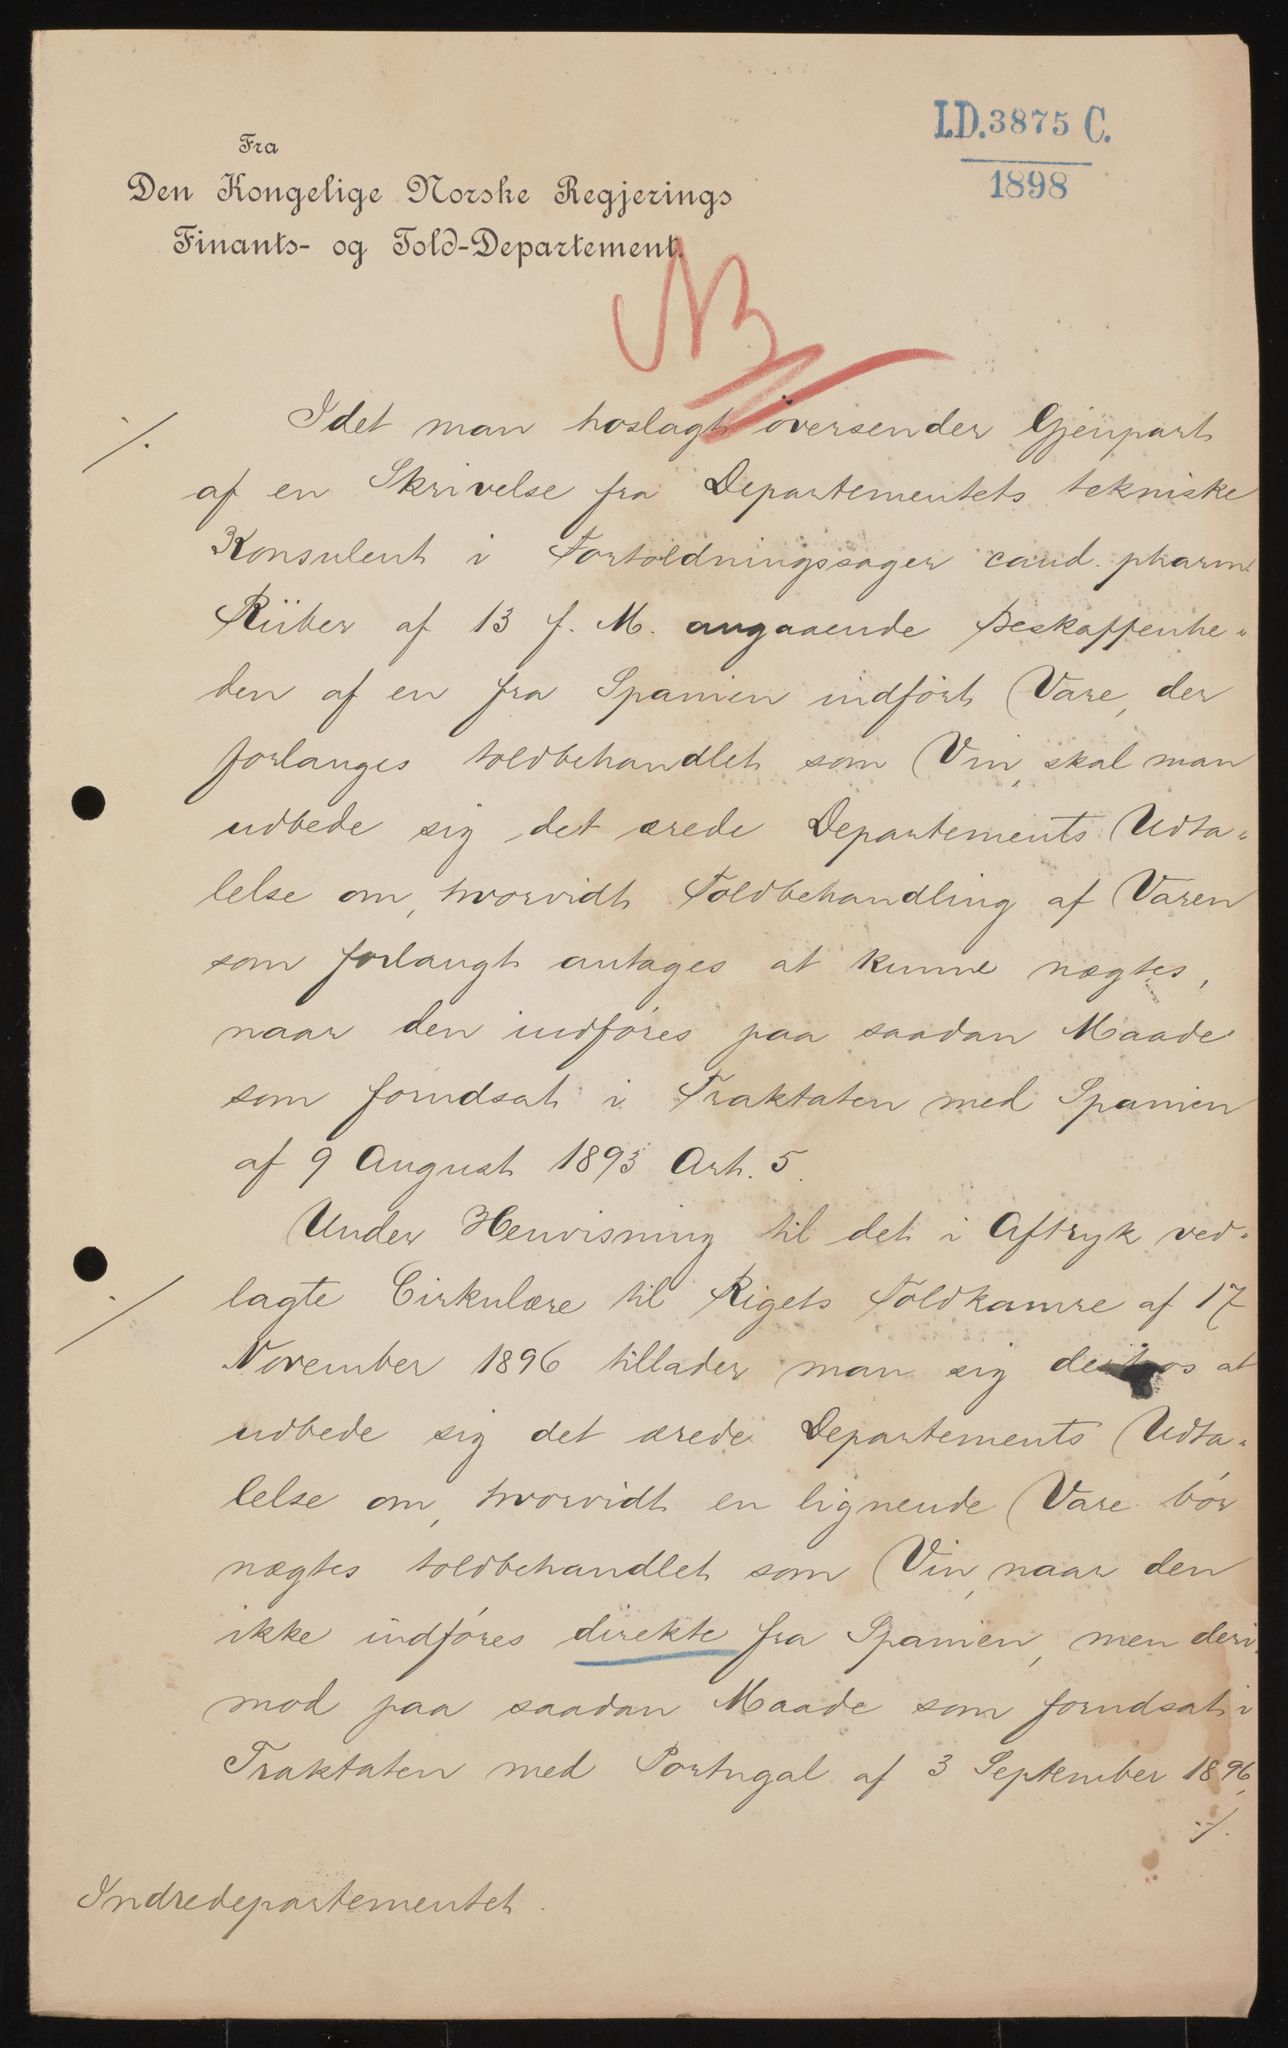 I.D. 3875 C.
1898
Fra
Den Kongelige Norske Regjerings
Finants- og Told-Departement.
NB
./. Idet man hoslagt oversender Gjenpart
af en Skrivelse fra Departementets tekniske
Konsulent i Fortoldningssager cand. pharm.
Riiber af 13 f. M. angaaende Beskaffenhe-
den af en fra Spanien indført Vare, der
forlanges toldbehandlet som Vin, skal man
udbede sig det ærede Departements Udta-
lelse om, hvorvidt Toldbehandling af Varen
som forlangt antages at kunne nægtes,
naar den indføres paa saadan Maade
som forudsat i Traktaten med Spanien
af 9 August 1893 Art. 5.
Under Henvisning til det i Aftryk ved-
./. lagte Cirkulære til Rigets Toldkamre af 17
November 1896 tillader man sig derhos at
udbede sig det ærede Departements Udta-
lelse om, hvorvidt en lignende Vare bør
nægtes toldbehandlet som Vin, naar den
ikke indføres direkte fra Spanien, men deri
mod paa saadan Maade som forudsat i
Traktaten med Portugal af 3 September 1896,
./.
Indredepartementet.